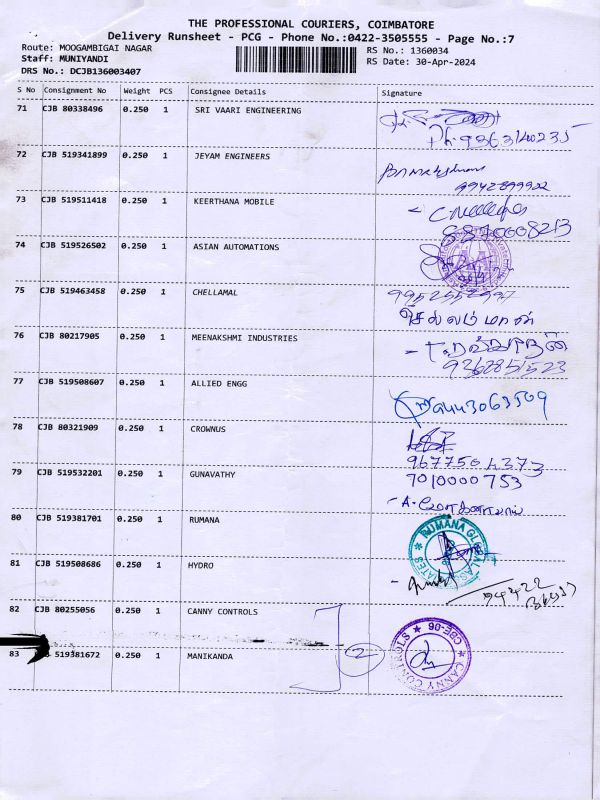 THE PROFESSIONAL COURIERS, COIMBATORE
Delivery Runsheet - PCG - Phone No.:0422-3505555 - Page No.:7
Route: MOOGAMBIGAI NAGAR
RS No.: 1360034
Staff: MUNIYANDI
RS Date: 30-Apr-2024
DRS No.: DCJB136003407
S No Consignment No Weight PCS Consignee Details Signature
71 CJB 80338496 0.250 1 SRI VAARI ENGINEERING
72 CJB 519341899 0.250 1 JEYAM ENGINEERS
73 CJB 519511418 0.250 1 KEERTHANA MOBILE
74 CJB 519526502 0.250 1 ASIAN AUTOMATIONS
75 CJB 519463458 0.250 1 CHELLAMAL
செல்லம்மாள்
76 CJB 80217905 0.250 1 MEENAKSHMI INDUSTRIES
9362851523
77 CJB 519508607 0.250 1 ALLIED ENGG
9443063509
78 CJB 80321909 0.250 1 CROWNUS
79 CJB 519532201 0.250 1 GUNAVATHY
7010000753
80 CJB 519381701 0.250 1 RUMANA
81 CJB 519508686 0.250 1 HYDRO
82 CJB 80255056 0.250 1 CANNY CONTROLS
2
CANNY CONTROLS ★ CBE-06 ★
83 519381672 0.250 1 MANIKANDA